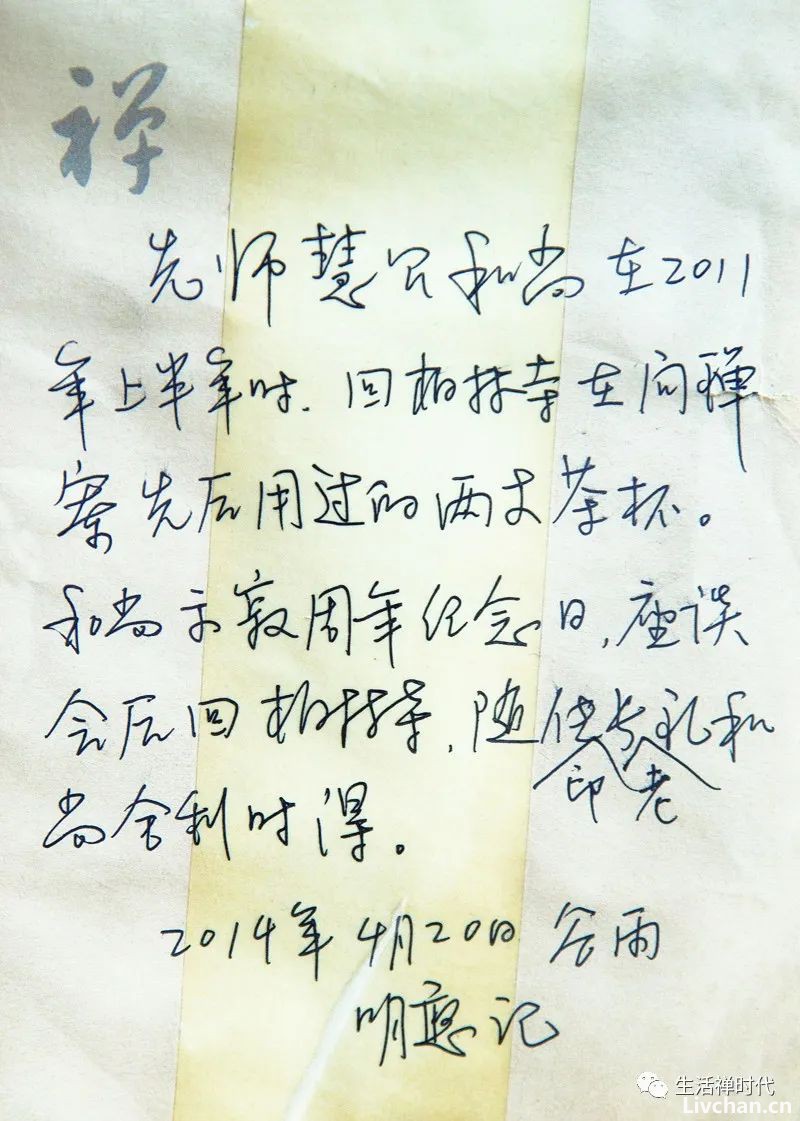 禅
先师慧公和尚在2011
年上半年时．回柏林寺在问禅
寮先后用过的两丈茶杯。
和尚示寂周年纪念日，座谈
会后回柏林寺，随传长礼和
印 老
尚舍利时得。
2014年4月20日 谷雨
明憨记
生活禅时代
Livchan.cn